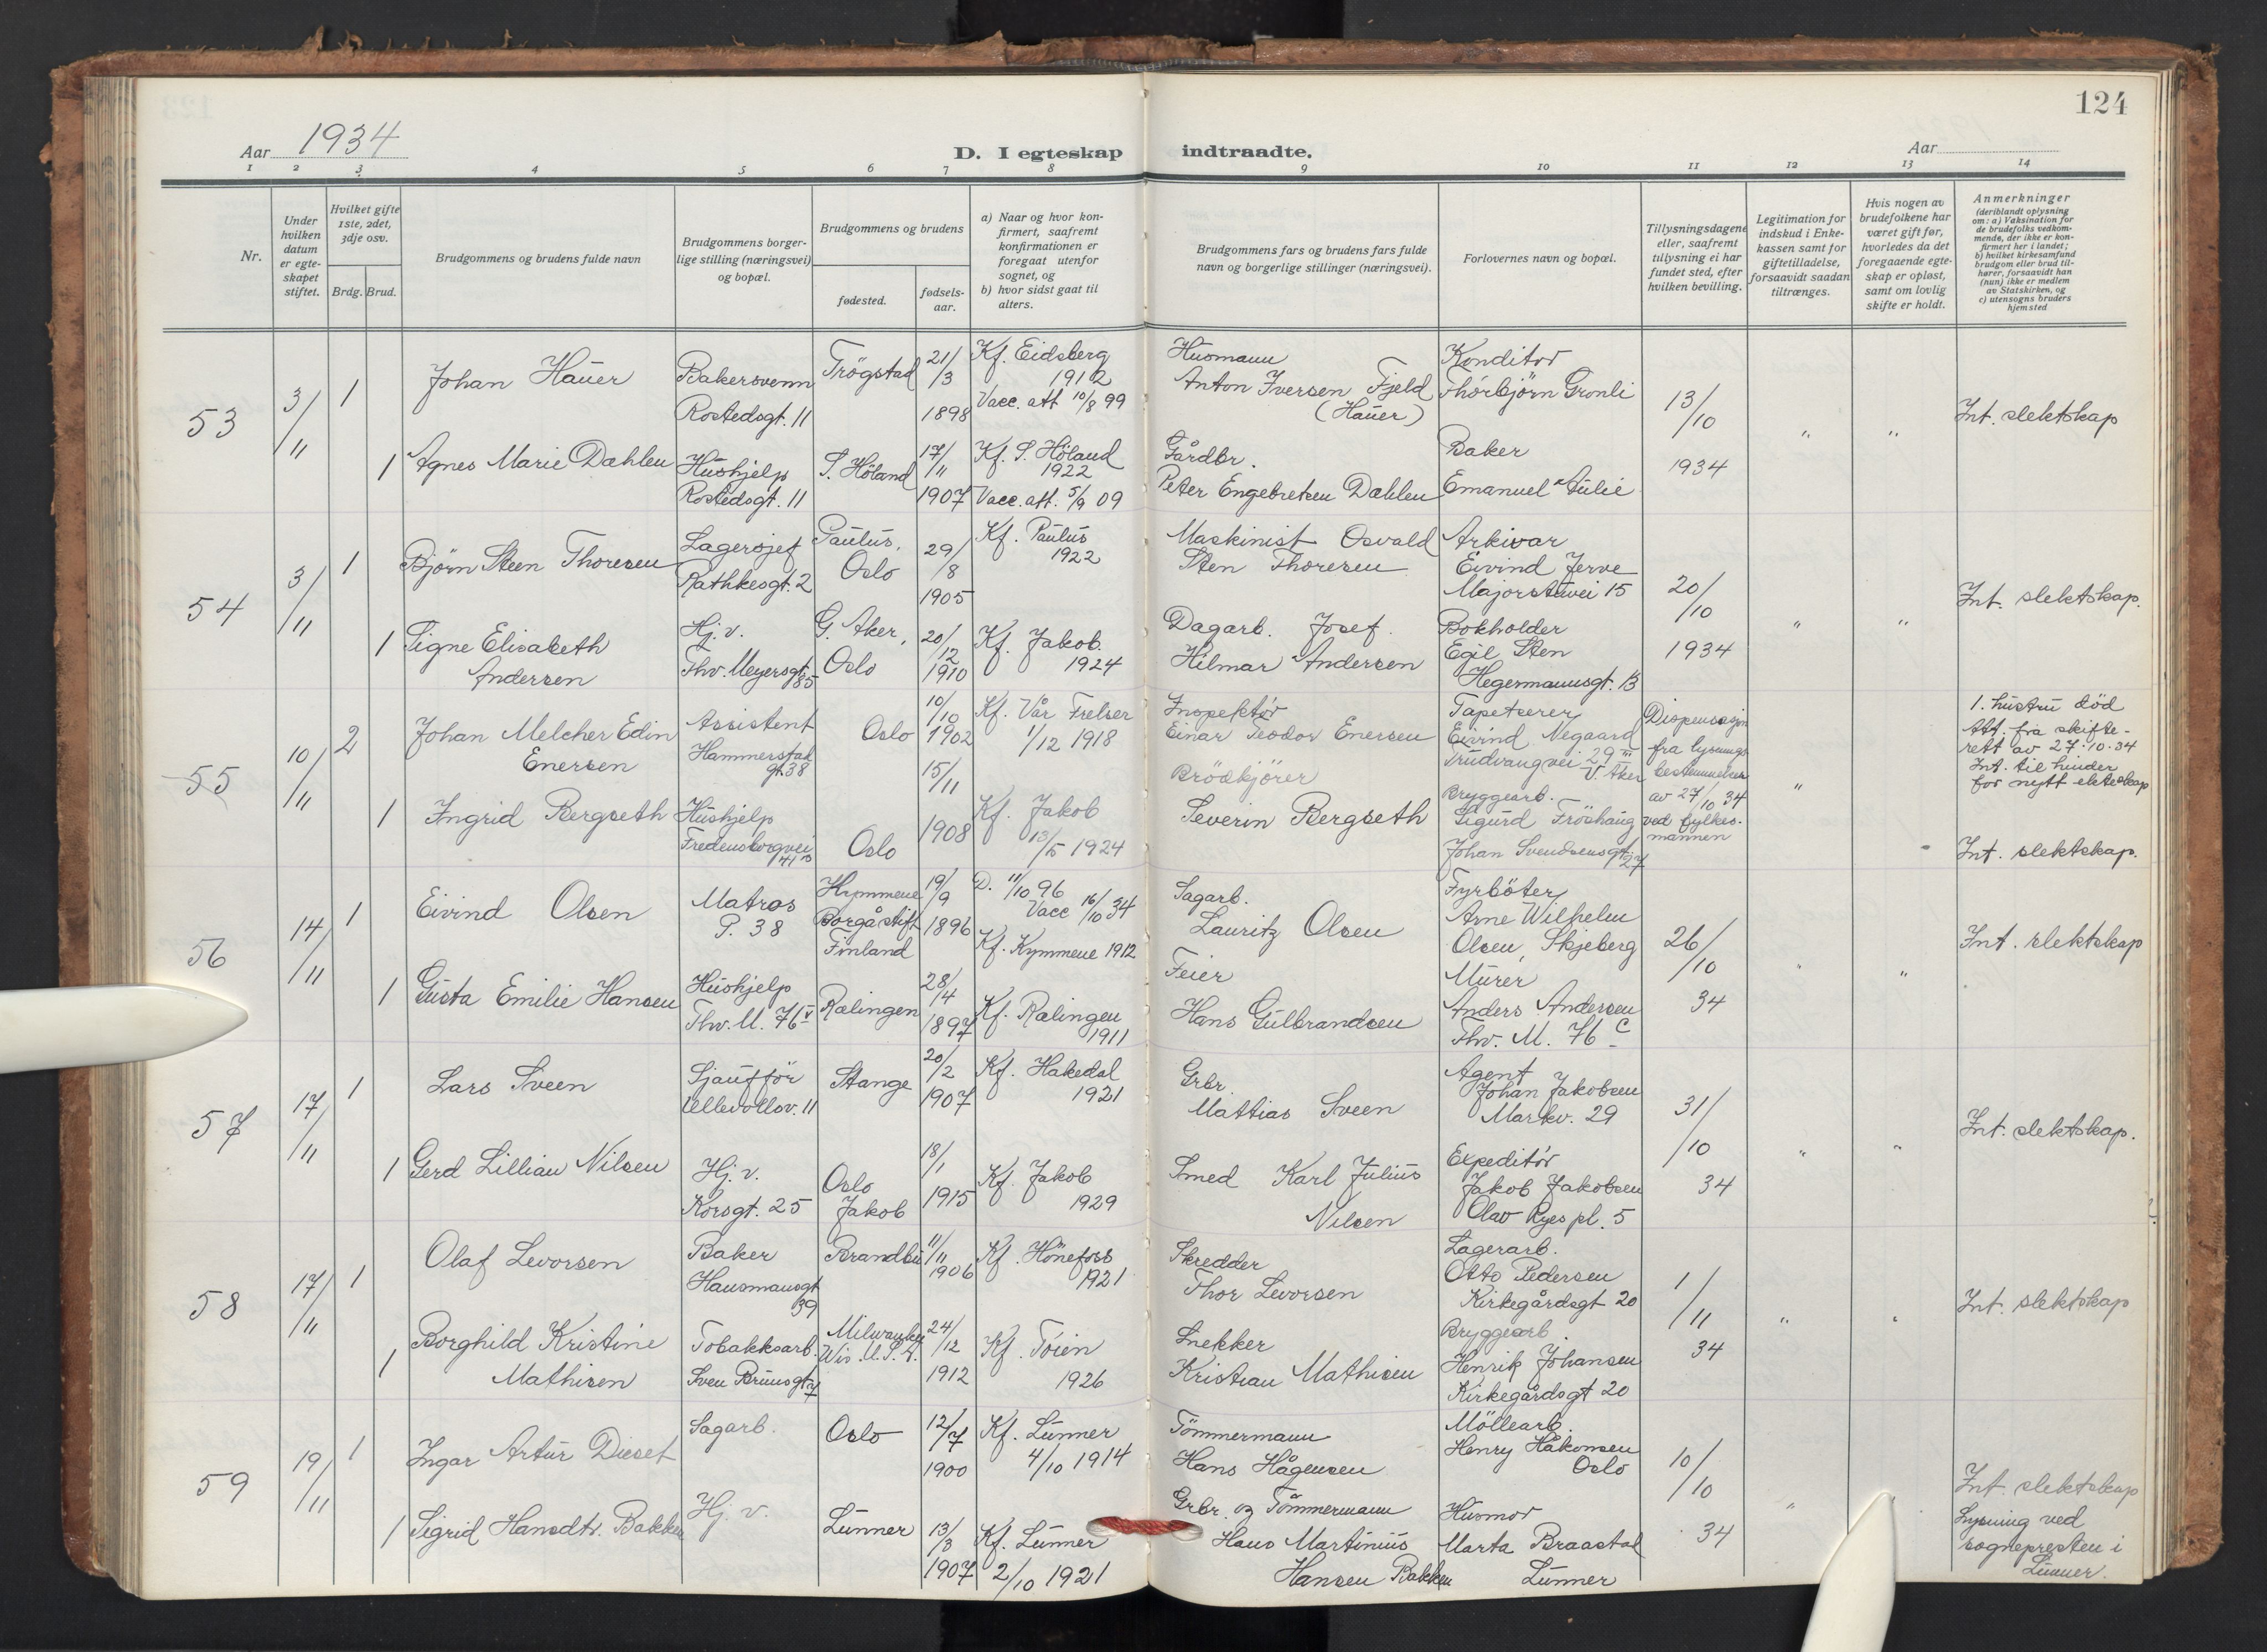 124
Aar 1934
D. I egteskap indtraadte.
Aar
1 2 3 4 5 6 7 8 9 10 11 12 13 14
Nr.
Under hvilken datum er egte-skapet stiftet.
Hvilket gifte 1ste, 2det, 3dje osv.
Brdg. Brud.
Brudgommens og brudens fulde navn
Brudgommens borger-lige stilling (næringsvei) og bopæl.
Brudgommens og brudens
fødested.
fødsels-aar.
a) Naar og hvor kon-firmert, saafremt konfirmationen er foregaat utenfor sognet, og
b) hvor sidst gaat til alters.
Brudgommens fars og brudens fars fulde navn og borgerlige stillinger (næringsvei).
Forlovernes navn og bopæl.
Tillysningsdagene eller, saafremt tillysning ei har fundet sted, efter hvilken bevilling.
Legitimation for indskud i Enke-kassen samt for giftetilladelse, forsaavidt saadan tiltrænges.
Hvis nogen av brudefolkene har været gift før, hvorledes da det foregaaende egte-skap er opløst, samt om lovlig skifte er holdt.
Anmerkninger
(deriblandt oplysning om: a) Vaksination for de brudefolks vedkom-mende, der ikke er kon-firmert her i landet; b) hvilket kirkesamfund brudgom eller brud til-hører, forsaavidt han (hun) ikke er medlem av Statskirken, og c) utensogns bruders hjemsted
53
3/11
1
Johan Hauer
Bakersvenn
Rostedsgt. 11
Trögstad
21/3
1898
Kf. Eidsberg
1912
Vacc. att 10/8 99
Husmann
Anton Iversen Fjeld
(Hauer)
Konditor
Thorbjörn Gronli
13/10
1934
" "
Int. slektskap
1
Agnes Marie Dæhlen
Hushjelp
Rostedsgt. 11
S. Höland
17/11
1907
Kf. S. Höland
1922
Vacc. att. 5/9 09
Gårdbr.
Peter Engebretsen Dæhlen
Baker
Emanuel Aulie
54
3/11
1
Björn Steen Thoresen
Lagersjef
Rathkesgt. 2
Paulus,
Oslo
29/8
1905
Kf. Paulus
1922
Maskinist Osvald
Sten Thoresen
Arkivar
Eivind Jerve
Majorstuvei 15
20/10
1934
" "
Int. slektskap.
1
Signe Elisabeth
Andersen
Hj. v.
Thv. Meyersgt. 85
G. Aker,
Oslo
20/12
1910
Kf. Jakob.
1924
Dagarb. Josef.
Hilmar Andersen
Bokholder
Egil Sten
Hegermannsgt. 13
55
10/11
2
Johan Melcher Edin
Enersen
Assistent
Hammerstad
gt. 38
Oslo
10/10
1902
Kf. Vår Frelser
1/12 1918
Inspektör
Einar Teodor Enersen
Tapetserer
Eivind Negaard
Trudvangvei 29 III
V. Aker
Dispensasjon
fra lysnings
bestemmelser
av 27/10 34
ved fylkes-
mannen
"
1. hustru död
Att. fra skifte-
rett av 27.10.34
Int. til hinder
for nytt ekteskap
Int. slektskap.
1
Ingrid Bergseth
Hushjelp
Fredensborgvei
41 B
Oslo
15/11
1908
Kf. Jakob
13/5 1924
Brödkjörer
Severin Bergseth
Bryggearb.
Sigurd Fröshaug
Johan Svendsensgt. 27
56
14/11
1
Eivind Olsen
Matros
P. 38
Kymmene
Borgå stift
Finland
19/9
1896
D. 11/10 96
Vacc 16/10 34
Kf. Kymmene 1912
Sagarb.
Lauritz Olsen
Fyrböter
Arne Wilhelm
Olsen, Skjeberg
26/10
34
" "
Int. slektskap
1
Gusta Emilie Hansen
Hushjelp
Thv. M. 76 V
Rælingen
28/4
1897
Kf. Rælingen
1911
Feier
Hans Gulbrandsen
Murer
Anders Andersen
Thv. M. 76 C
57
17/11
1
Lars Sveen
Sjaufför
Ullevollsv. 11
Stange
20/2
1907
Kf. Hakedal
1921
Grbr.
Mattias Sveen
Agent
Johan Jakobsen
Markv. 29
31/10
34
" "
Int. slektskap.
1
Gerd Lillian Nilsen
Hj. v.
Korsgt. 25
Oslo
Jakob
18/1
1915
Kf. Jakob
1929
Smed Karl Julius
Nilsen
Expeditör
Jakob Jakobsen
Olav Ryes pl. 5
58
17/11
1
Olaf Levorsen
Baker
Hausmansgt
39
Brandbu
11/11
1906
Kf. Hönefoss
1921
Skredder
Thor Levorsen
Lagerarb.
Otto Pedersen
Kirkegårdsgt 20
1/11
34
" "
Int. slektskap
1
Borghild Kristine
Mathisen
Tobakksarb.
Sven Brunsgt 7
Milwaukee
Wis. U.S.A.
24/12
1912
Kf. Töien
1926
Snekker
Kristian Mathisen
Bryggearb.
Henrik Johansen
Kirkegårdsgt 20
59
19/11
1
Ingar Artur Dieset
Sagarb.
Oslo
12/7
1900
Kf. Lunner
4/10 1914
Tömmermann
Hans Hågensen
Möllearb.
Henry Håkonsen
Oslo
10/10
34
" "
Int. slektskap
Lysning ved
sognepresten i
Lunner.
1
Sigrid Hansdtr. Bakken
Hj. v.
Lunner
13/3
1907
Kf. Lunner
2/10 1921
Grbr. og Tömmermann
Hans Martinius
Hansen Bakken
Husmor
Marta Braastad
Lunner